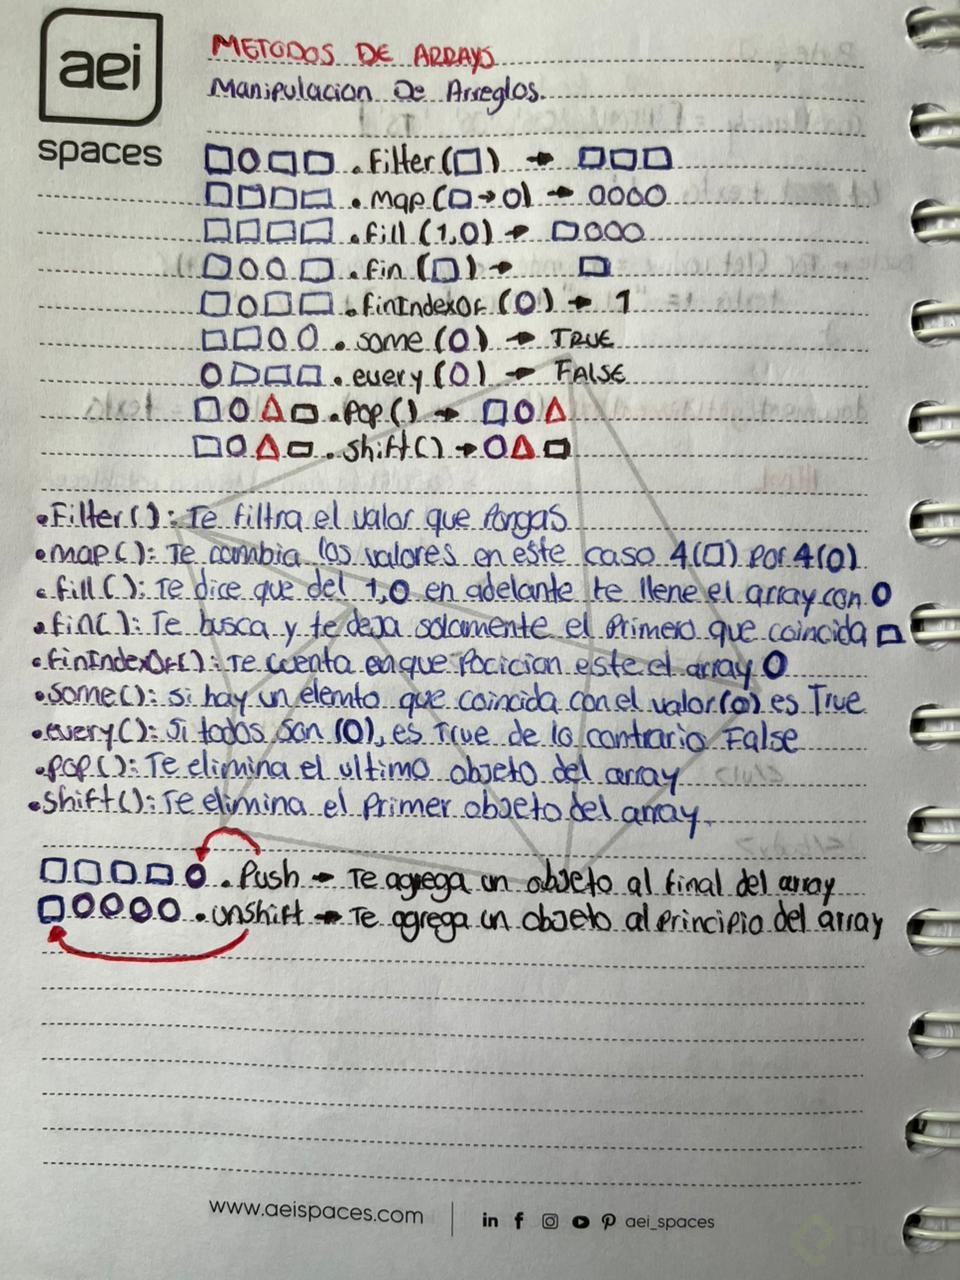 aei
spaces
METODOS DE ARRAYS
Manipulacion De Arreglos.
□○□□ .filter(□) → □□□
□□□□ .map(□→○) → ○○○○
□□□□ .fill (1,0) → □○○○
□○○□ .fin (□) → □
□○□□ .finIndexOf (○) → 1
□□○○ .some (○) → TRUE
○□□□ .every (○) → FALSE
□○△□ .pop() → □○△
□○△□ .shift() → ○△□
.Filter(): Te filtra el valor que Pongas
.map(): Te cambia los valores en este caso 4(□) Por 4(○)
.fill(): Te dice que del 1,0 en adelante te llene el array con ○
.fin(): Te busca y te deja solamente el Primero que coincida □
.finIndexOf(): Te cuenta en que Pocicion este el array ○
.some(): si hay un elemto que coincida con el valor(○) es True
.every(): Si todos son (○), es True de lo contrario False
.pop(): Te elimina el ultimo objeto del array
.shift(): Te elimina el Primer objeto del array.
□□□□○ .Push → Te agrega un objeto al final del array
□○○○○ .unshift → Te agrega un objeto al Principio del array
www.aeispaces.com | in f aei_spaces